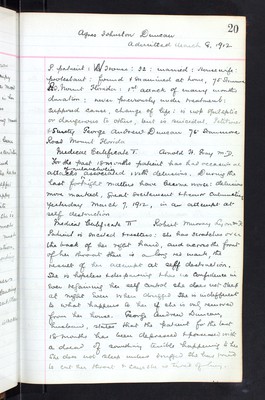 20
Agnes Johnston Duncan
Admitted March 8, 1912
patient: Thomas: 52: married: housewife:
protestant: found & examined at home, 75
Rd. Mount Florida: 1st attack of many months
duration: never previously under treatment:
supposed cause, change of life: is not epileptic
or dangerous to others, but is suicidal. Petitioner
George Andrew Duncan 75
Road Mount Florida
Medical Certificate I Arnold H. Ray M.D.
For the past 18 months patient has had occasional
attacks associated with delusions. During the
last fortnight matters have become more: delusions
more marked, Great excitement & terror culminating
yesterday March 7, 1912, in an attempt at
self destruction
Medical Certificate II Robert Murray M.D.
Patient is excited & restless: she has scratches over
the back of her right hand, and across the front
of her throat there is a long red mark, the
result of her attempt at self destruction.
She is hopeless & despairing & has no confidence in
ever regaining her self control she does not sleep
at night even when drugged She is indifferent
to what happens to her if she is only removed
from her house. George Andrew Duncan,
husband, states that the patient for the last
18 months has been depressed & possessed with
a dread of something terrible happening to her
She does not sleep unless drugged She has tried
to cut her throat &